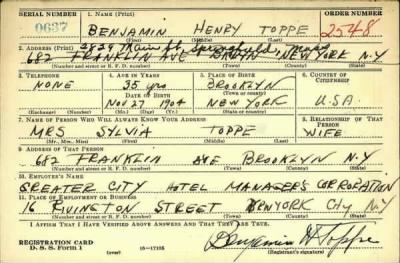 SERIAL NUMBER 1. NAME (Print) ORDER NUMBER
0637 BENJAMIN HENRY TOPPE 2548
(First) (Middle) (Last)
2. ADDRESS (Print) 2829 Main St, Springfield, Mass
682 FRANKLIN AVE BKLYN NEW YORK N.Y
(Number and street or R. F. D. number) (Town) (County) (State)
3. TELEPHONE 4. AGE IN YEARS 5. PLACE OF BIRTH 6. COUNTRY OF CITIZENSHIP
NONE 35 yrs BROOKLYN
DATE OF BIRTH (Town or county)
NOV 27 1904 NEW YORK U.S.A.
(Exchange) (Number) (Mo.) (Day) (Yr.) (State or country)
7. NAME OF PERSON WHO WILL ALWAYS KNOW YOUR ADDRESS 8. RELATIONSHIP OF THAT PERSON
MRS SYLVIA TOPPE WIFE
(Mr., Mrs., Miss) (First) (Middle) (Last)
9. ADDRESS OF THAT PERSON
682 FRANKLIN AVE BROOKLYN N.Y
(Number and street or R. F. D. number) (Town) (County) (State)
10. EMPLOYER'S NAME
GREATER CITY HOTEL MANAGERS CORPORATION
11. PLACE OF EMPLOYMENT OR BUSINESS
16 RIVINGTON STREET NEWYORK City N.Y
(Number and street or R. F. D. number) (Town) (County) (State)
I AFFIRM THAT I HAVE VERIFIED ABOVE ANSWERS AND THAT THEY ARE TRUE.
REGISTRATION CARD
D. S. S. FORM 1 (over) 16—17105 Benjamin H Toppe
(Registrant's signature)